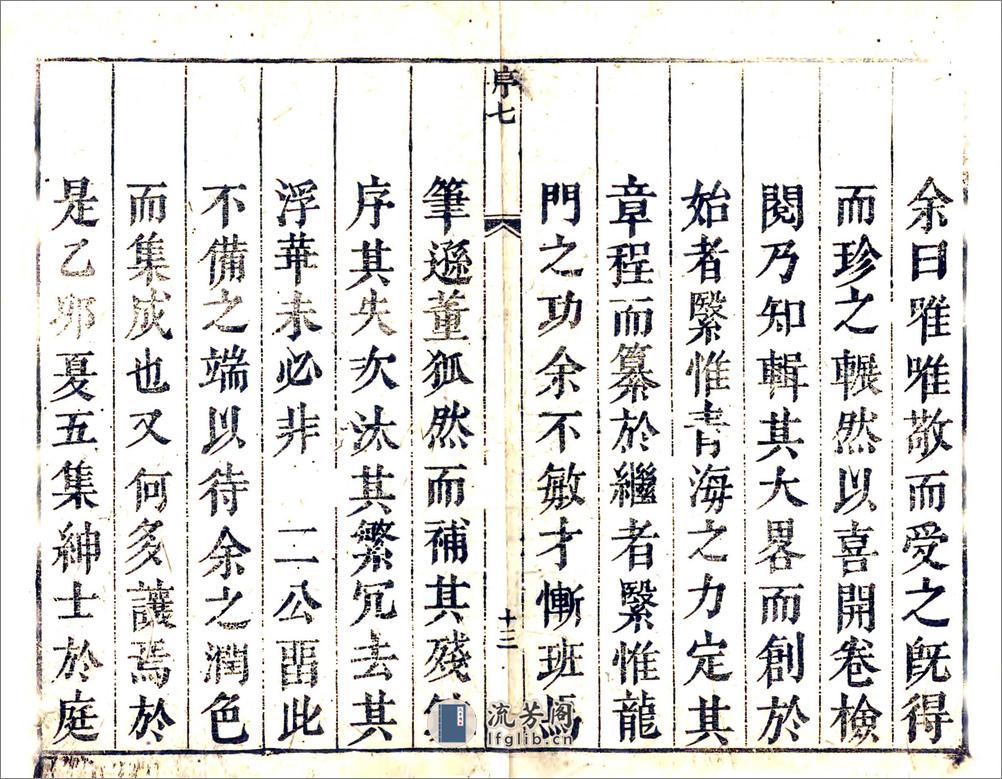 余曰唯唯敬而受之旣得
而珍之輾然以喜開卷檢
閱乃知輯其大畧而創於
始者繄惟青海之力定其
章程而纂於繼者繄惟龍
門之功余不敏才慚班馬
序七
十三
筆遜董狐然而補其殘
序其失次汰其繁冗去其
浮華未必非 二公畱此
不備之端以待余之潤色
而集成也又何多讓焉於
是乙夘夏五集紳士於庭
流芳阁
lfglib.cn